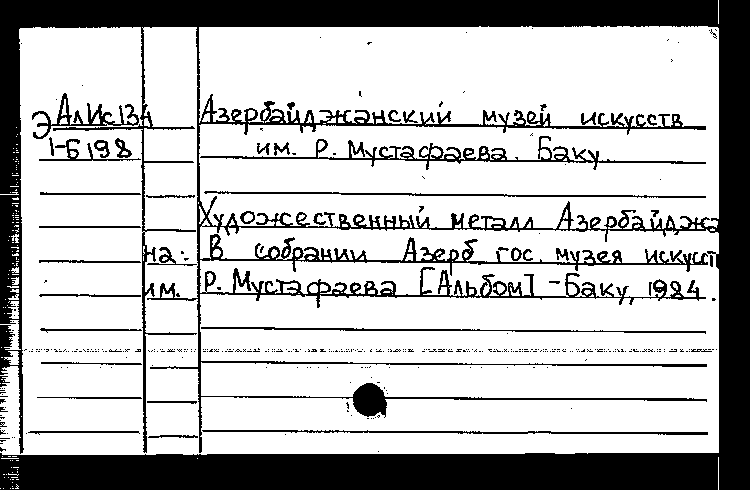 Э АлИс13А Азербайджанский музей искусств
1-Б198 им. Р. Мустафаева. Баку.
Художественный металл Азербайджа
на: В собрании Азерб. гос. музея искусств
им. Р. Мустафаева [Альбом] - Баку, 1984.